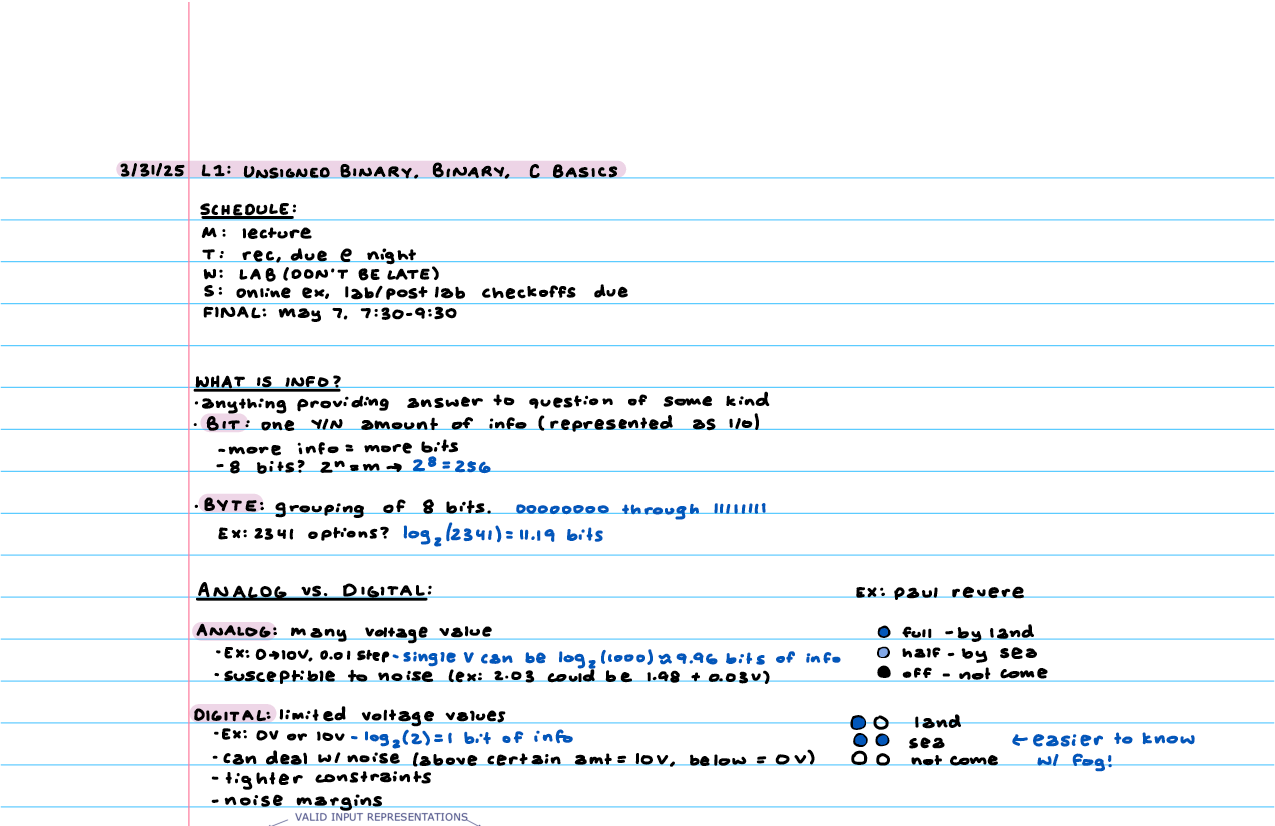 3/31/25 L1: UNSIGNED BINARY, BINARY, C BASICS
SCHEDULE:
M: lecture
T: rec, due @ night
W: LAB (DON'T BE LATE)
S: online ex, lab/post lab checkoffs due
FINAL: may 7, 7:30-9:30
WHAT IS INFO?
·anything providing answer to question of some kind
·BIT: one Y/N amount of info (represented as 1/0)
-more info = more bits
-8 bits? 2ⁿ=m → 2⁸=256
·BYTE: grouping of 8 bits. 00000000 through 11111111
Ex: 2341 options? log₂(2341)=11.19 bits
ANALOG VS. DIGITAL:
ANALOG: many voltage value
·Ex: 0→10V, 0.01 step-single V can be log₂(1000)≈9.96 bits of info
·susceptible to noise (ex: 2.03 could be 1.98 + 0.03V)
DIGITAL: limited voltage values
·Ex: 0V or 10V - log₂(2)=1 bit of info
·can deal w/ noise (above certain amt = 10V, below = 0V)
-tighter constraints
-noise margins
VALID INPUT REPRESENTATIONS
EX: paul revere
full - by land
half - by sea
off - not come
land
sea
not come
← easier to know
w/ fog!